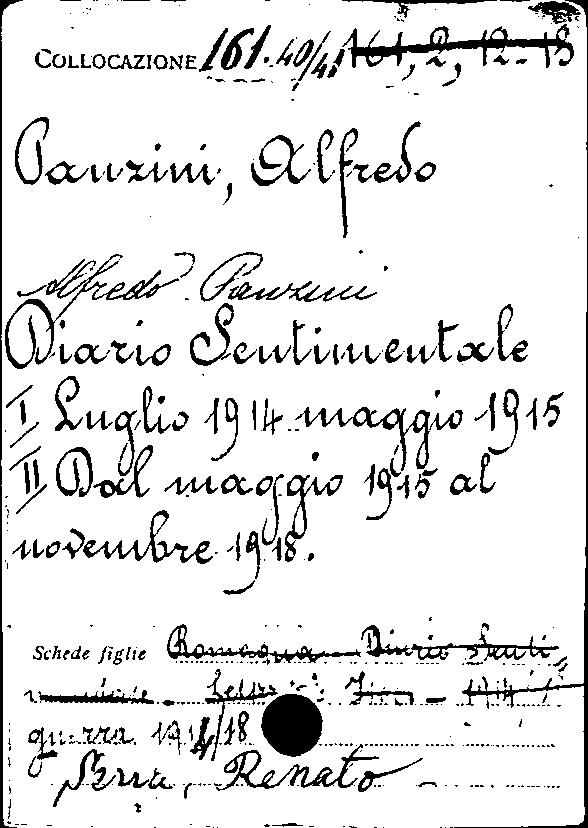 COLLOCAZIONE 161.40/41 161, 2, 12-13
Panzini, Alfredo
Alfredo Panzini
Diario Sentimentale
I Luglio 1914 maggio 1915
II Dal maggio 1915 al
novembre 1918.
Schede figlie Romagna - Diario Senti
guerra 1914/18
Serra, Renato